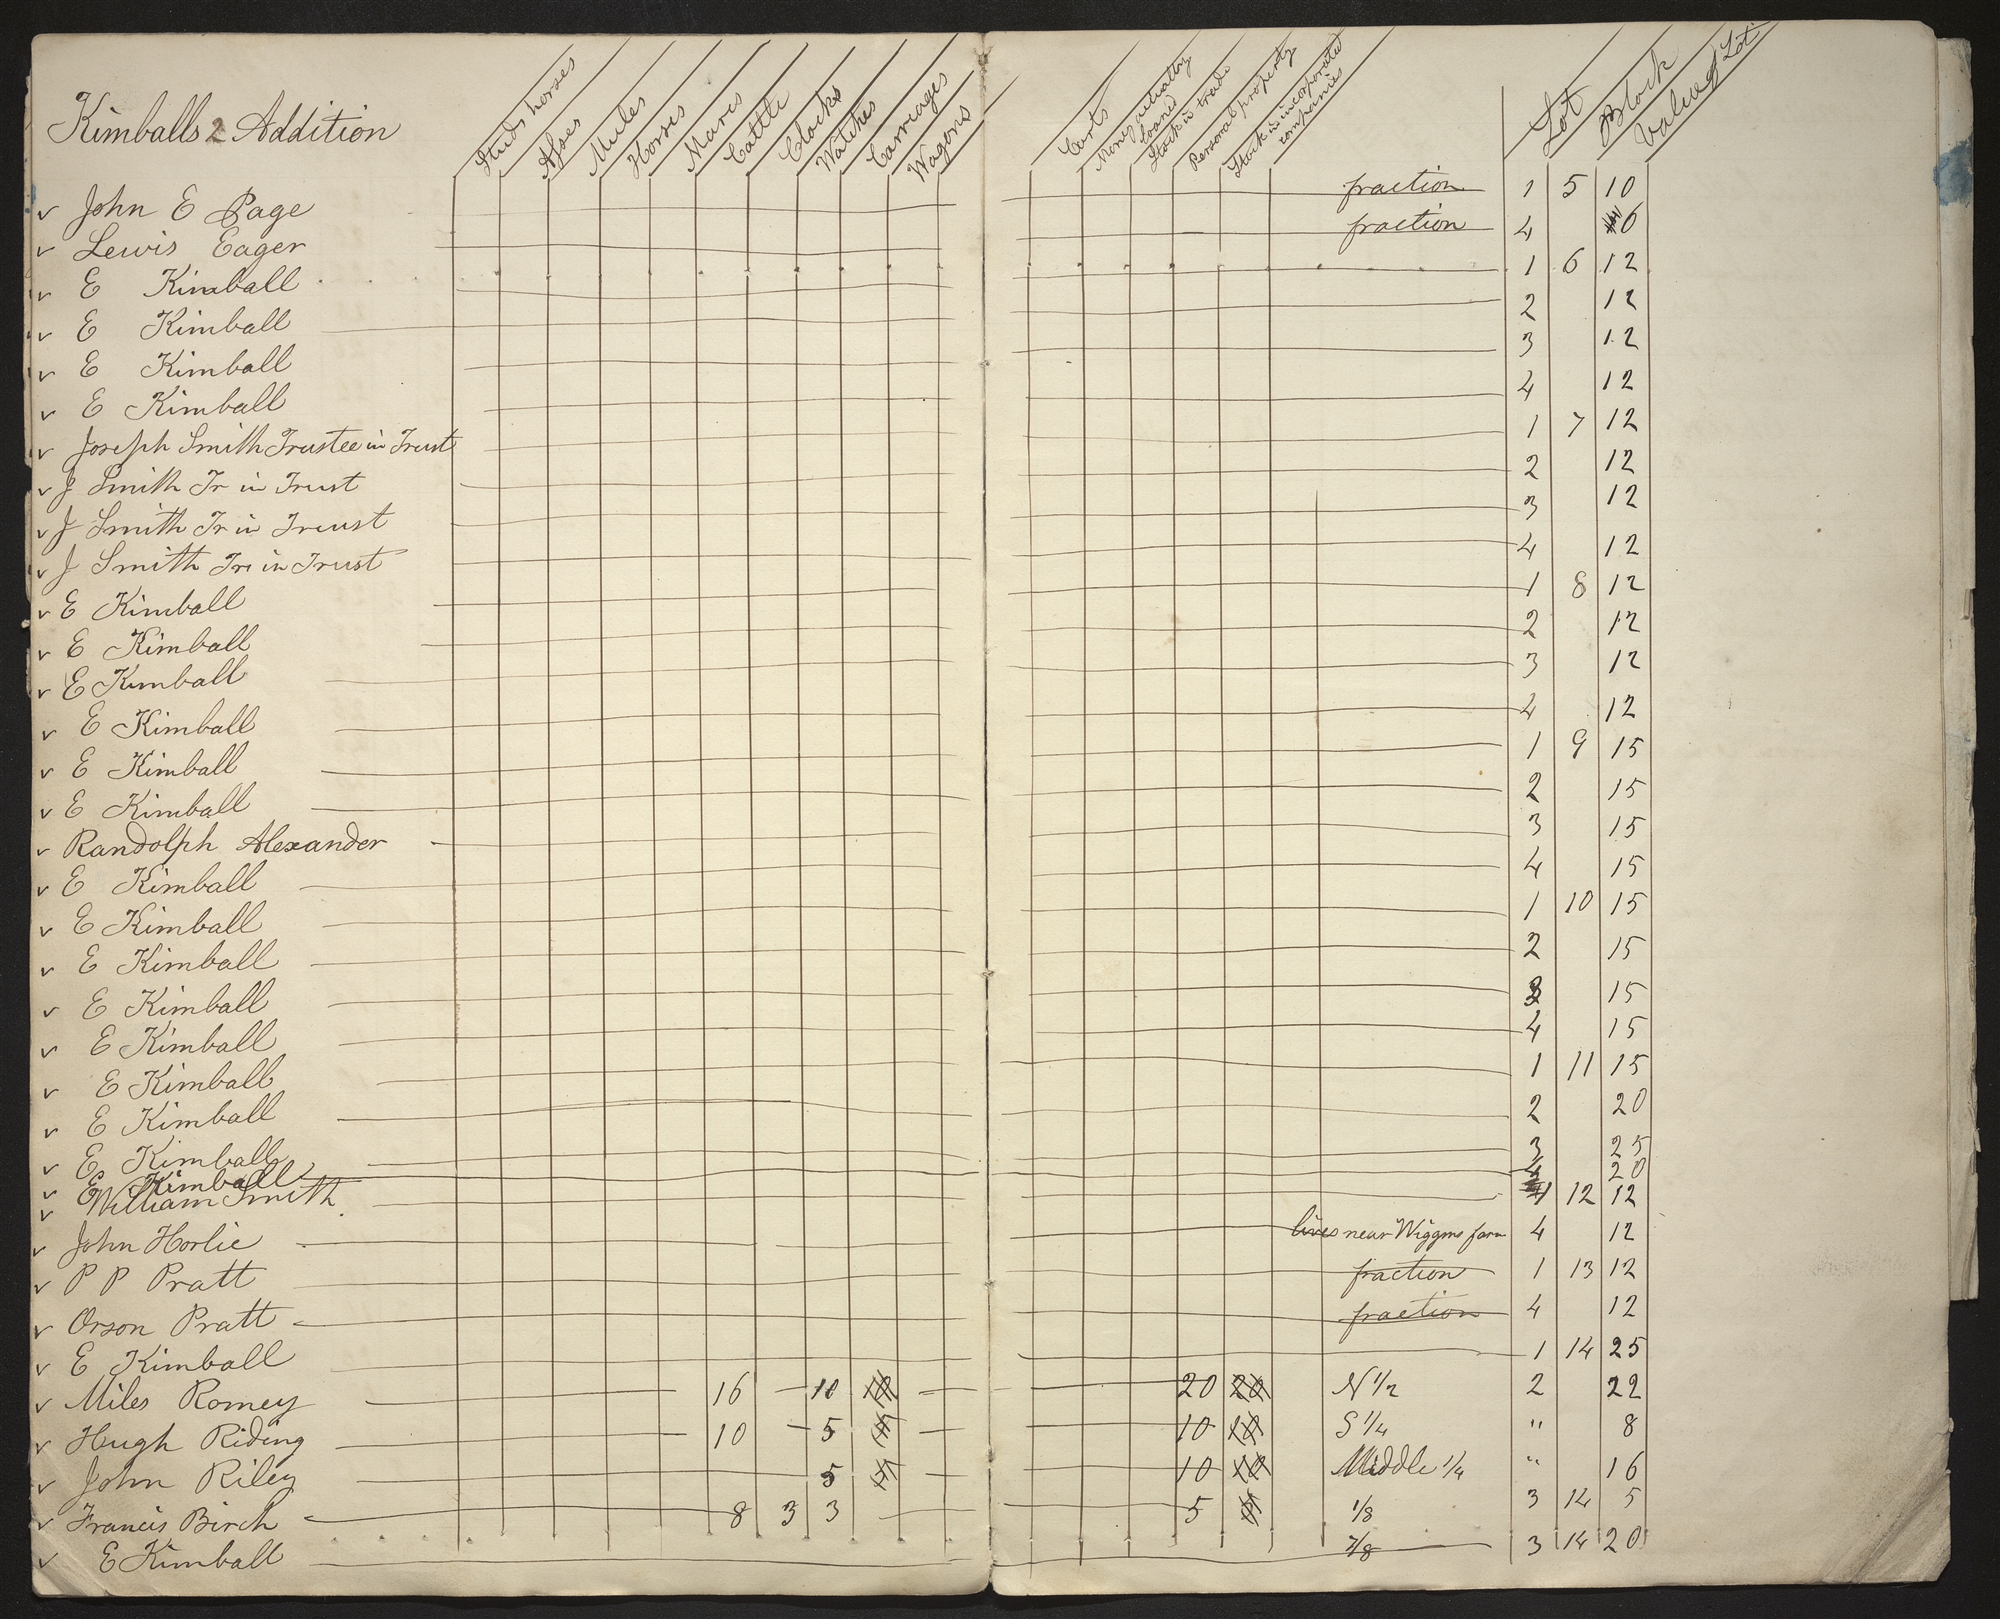 Kimballs 2 Addition
Studs horses Asses Mules Horses Mares Cattle Clocks Watches Carriages Wagons Carts Money actually loaned Stock in trade Personal property Stock in incorporated companies Lot Block Value of Lot
v John E Page fraction 1 5 10
v Lewis Eager fraction 4 6
v E Kimball 1 6 12
v E Kimball 2 12
v E Kimball 3 12
v E Kimball 4 12
v Joseph Smith Trustee in Trust 1 7 12
v J Smith Tr in Trust 2 12
v J Smith Tr in Treust 3 12
v J Smith Tre in Trust 4 12
v E Kimball 1 8 12
v E Kimball 2 12
v E Kimball 3 12
v E Kimball 4 12
v E Kimball 1 9 15
v E Kimball 2 15
v Randolph Alexander 3 15
v E Kimball 4 15
v E Kimball 1 10 15
v E Kimball 2 15
v E Kimball 3 15
v E Kimball 4 15
v E Kimball 1 11 15
v E Kimball 2 20
v E Kimball 3 25
v E Kimball 4 20
v William Smith 1 12 12
v John Horlie lives near Wiggins farm 4 12
v P P Pratt fraction 1 13 12
v Orson Pratt fraction 4 12
v E Kimball 1 14 25
v Miles Romey 16 10 10 20 20 N 1/2 2 22
v Hugh Riding 10 5 5 10 10 S 1/4 " 8
v John Riley 5 5 10 10 Middle 1/4 " 16
v Francis Birch 8 3 3 5 5 1/8 3 14 5
v E Kimball 7/8 3 14 20